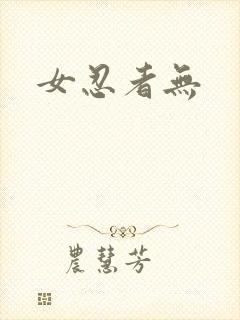 女忍者無
農慧芳